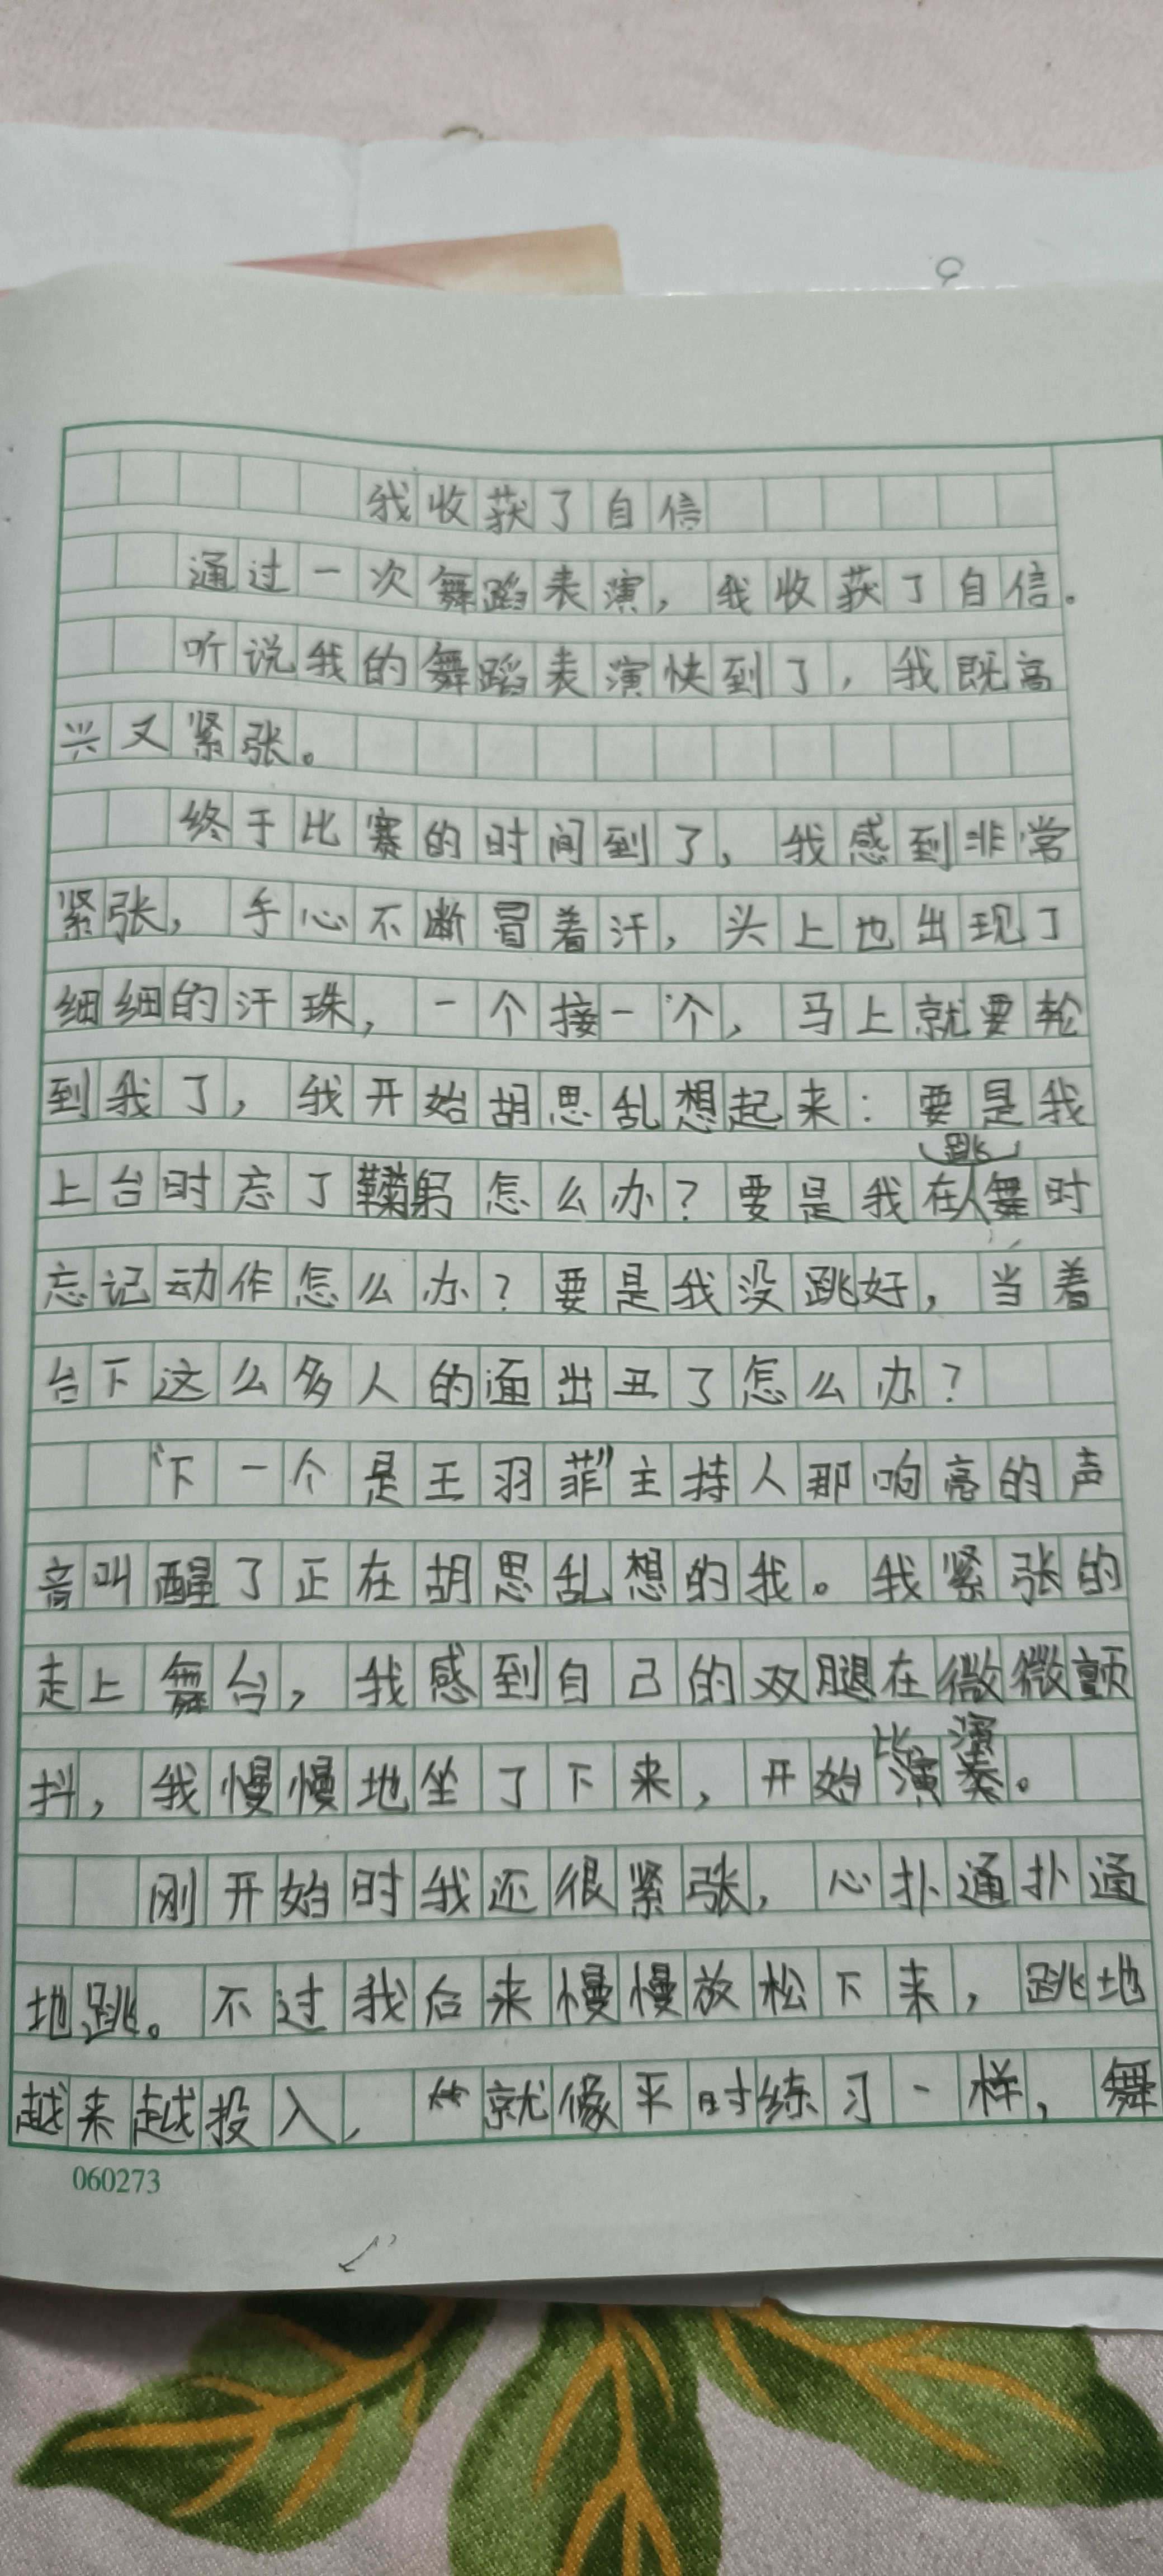 我收获了自信
通过一次舞蹈表演，我收获了自信。
听说我的舞蹈表演快到了，我既高
兴又紧张。
终于比赛的时间到了，我感到非常
紧张，手心不断冒着汗，头上也出现了
细细的汗珠，一个接一个，马上就要轮
到我了，我开始胡思乱想起来：要是我
上台时忘了鞠躬怎么办？要是我在跳舞时
忘记动作怎么办？要是我没跳好，当着
台下这么多人的面出丑了怎么办？
“下一个是王羽菲”主持人那响亮的声
音叫醒了正在胡思乱想的我。我紧张的
走上舞台，我感到自己的双腿在微微颤
抖，我慢慢地坐了下来，开始演奏。
刚开始时我还很紧张，心扑通扑通
地跳。不过我后来慢慢放松下来，跳地
越来越投入，就像平时练习一样，舞
060273